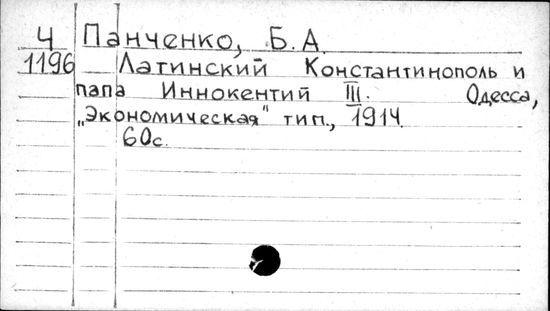 Ч Панченко, Б.А.
1196 Латинский Константинополь и
папа Иннокентий III. Одесса,
„Экономическая" тип., 1914.
60с.